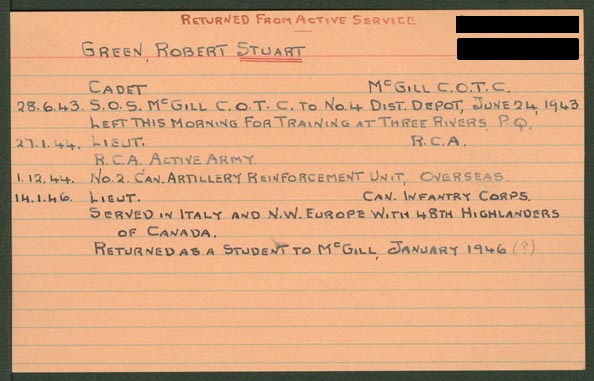 RETURNED FROM ACTIVE SERVICE
GREEN, ROBERT STUART
CADET McGILL C.O.T.C.
28.6.43. S.O.S. McGILL C.O.T.C. TO No.4 DIST. DEPOT, JUNE 24, 1943
LEFT THIS MORNING FOR TRAINING AT THREE RIVERS, P.Q.
27.1.44. LIEUT. R.C.A.
R.C.A. ACTIVE ARMY.
1.12.44. No.2. CAN. ARTILLERY REINFORCEMENT UNIT, OVERSEAS.
14.1.46. LIEUT. CAN. INFANTRY CORPS.
SERVED IN ITALY AND N.W. EUROPE WITH 48TH HIGHLANDERS
OF CANADA.
RETURNED AS A STUDENT TO McGILL, JANUARY 1946 (?)